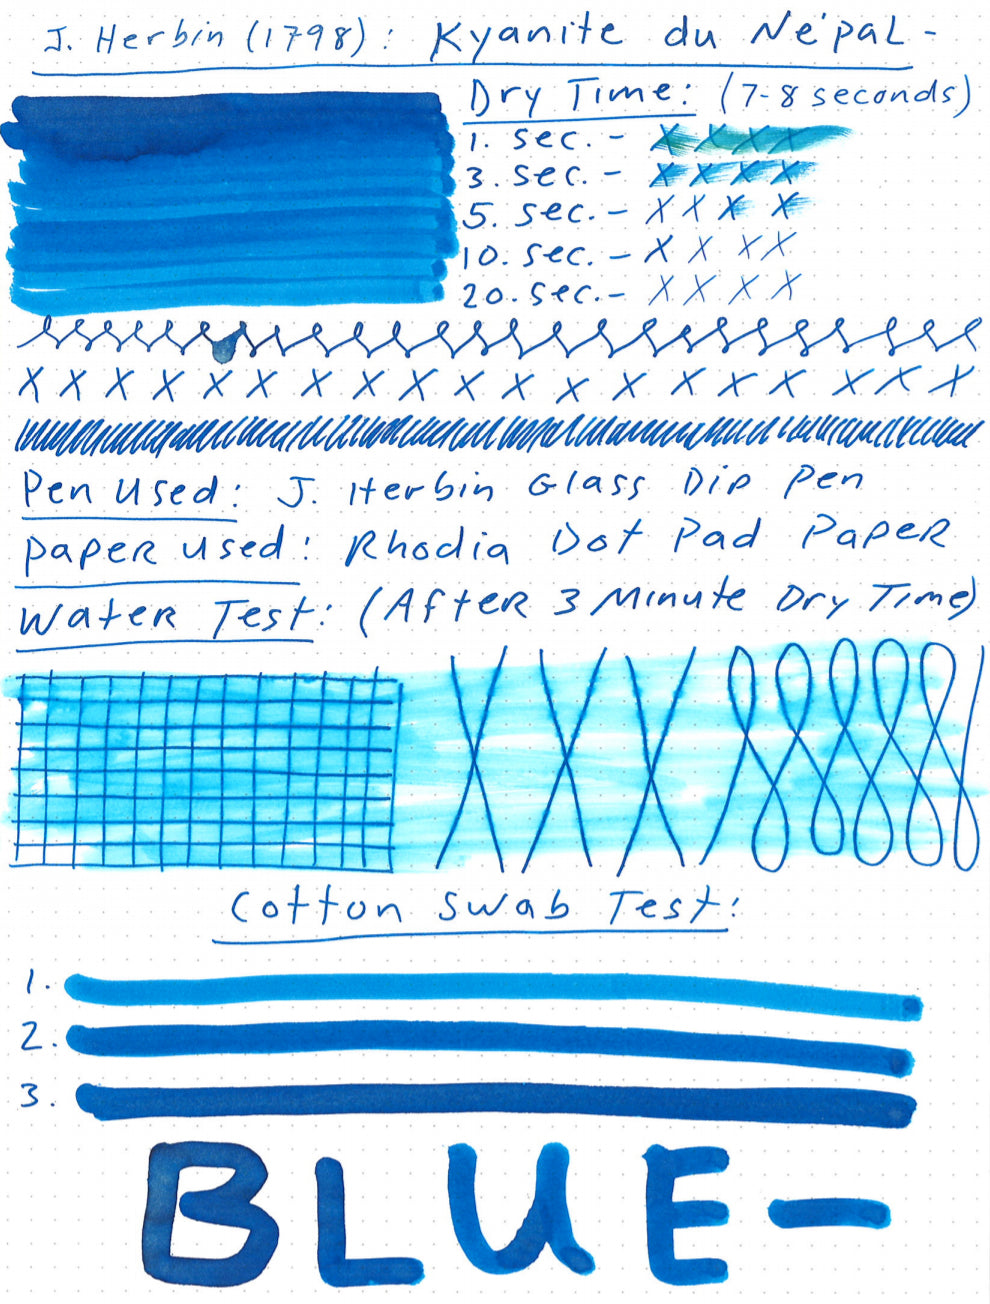 J. Herbin (1798): Kyanite du Népal -
Dry Time: (7-8 seconds)
1. sec. - x x x x
3. sec. - x x x x
5. sec. - x x x x
10. sec. - x x x x
20. sec. - x x x x
x x x x x x x x x x x x x x x x x x x
Pen Used: J. Herbin Glass Dip Pen
Paper Used: Rhodia Dot Pad Paper
Water Test: (After 3 Minute Dry Time)
Cotton Swab Test:
1.
2.
3.
BLUE-